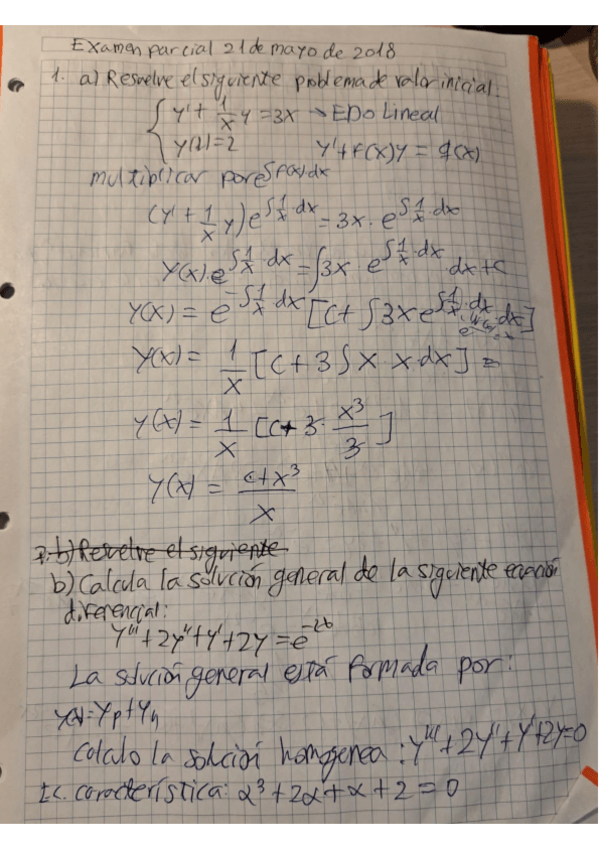 Examen parcial 21 de mayo de 2018
1. a) Resuelve el siguiente problema de valor inicial.
{ y' + 1/x y = 3x → EDO Lineal
y(1) = 2 y' + f(x)y = g(x)
multiplicar por e^∫f(x)dx
(y' + 1/x y) e^∫1/x dx = 3x · e^∫1/x dx
y(x) · e^∫1/x dx = ∫3x e^∫1/x dx dx + c
y(x) = e^-∫1/x dx [c + ∫3x e^∫1/x dx dx]
y(x) = 1/x [c + 3∫x x dx] =
y(x) = 1/x [c + 3 · x³/3]
y(x) = c+x³/x
b) Resuelve el siguiente
b) Calcula la solución general de la siguiente ecuación
diferencial:
y''' + 2y'' + y' + 2y = e^-2t
La solución general está formada por:
= yp + yh
Calculo la solución homogenea: y''' + 2y' + y' + 2y = 0
Ec. característica: α³ + 2α + α + 2 = 0